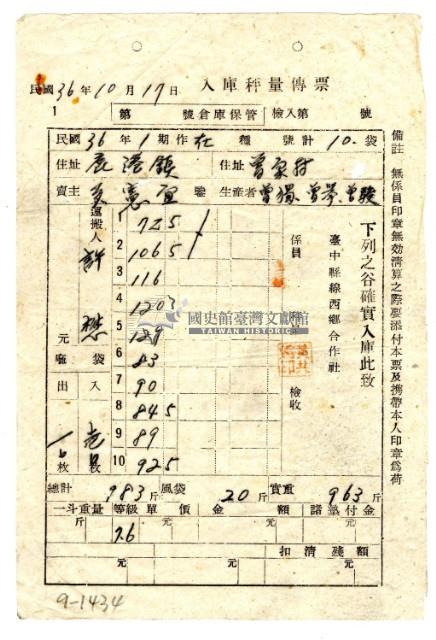 民國36年10月17日 入庫秤量傳票
1 第 號倉庫保管 檢入第 號
民國36年1期作在 種 號計10.袋
住址 鹿港鎮 住址
賣主 生産者
運搬人 許
1 725
2 1065
3 116
4 1203
5 129
6 83
7 90
8 845
9 89
10 925
元 袋
出 入
枚 枚
係員
檢收
臺中縣線西鄉合作社
下列之谷確實入庫此致
總計 983斤 風袋 20斤 實重 963斤
一斗重量 等級 單價 金額 諸墊付金
斤 元 元 元
76
扣清殘額
元 元 元
備註 無係員印章無効清算之際要添付本票及携帶本人印章為荷
國史館臺灣文獻館
TAIWAN HISTORICA
9-1434